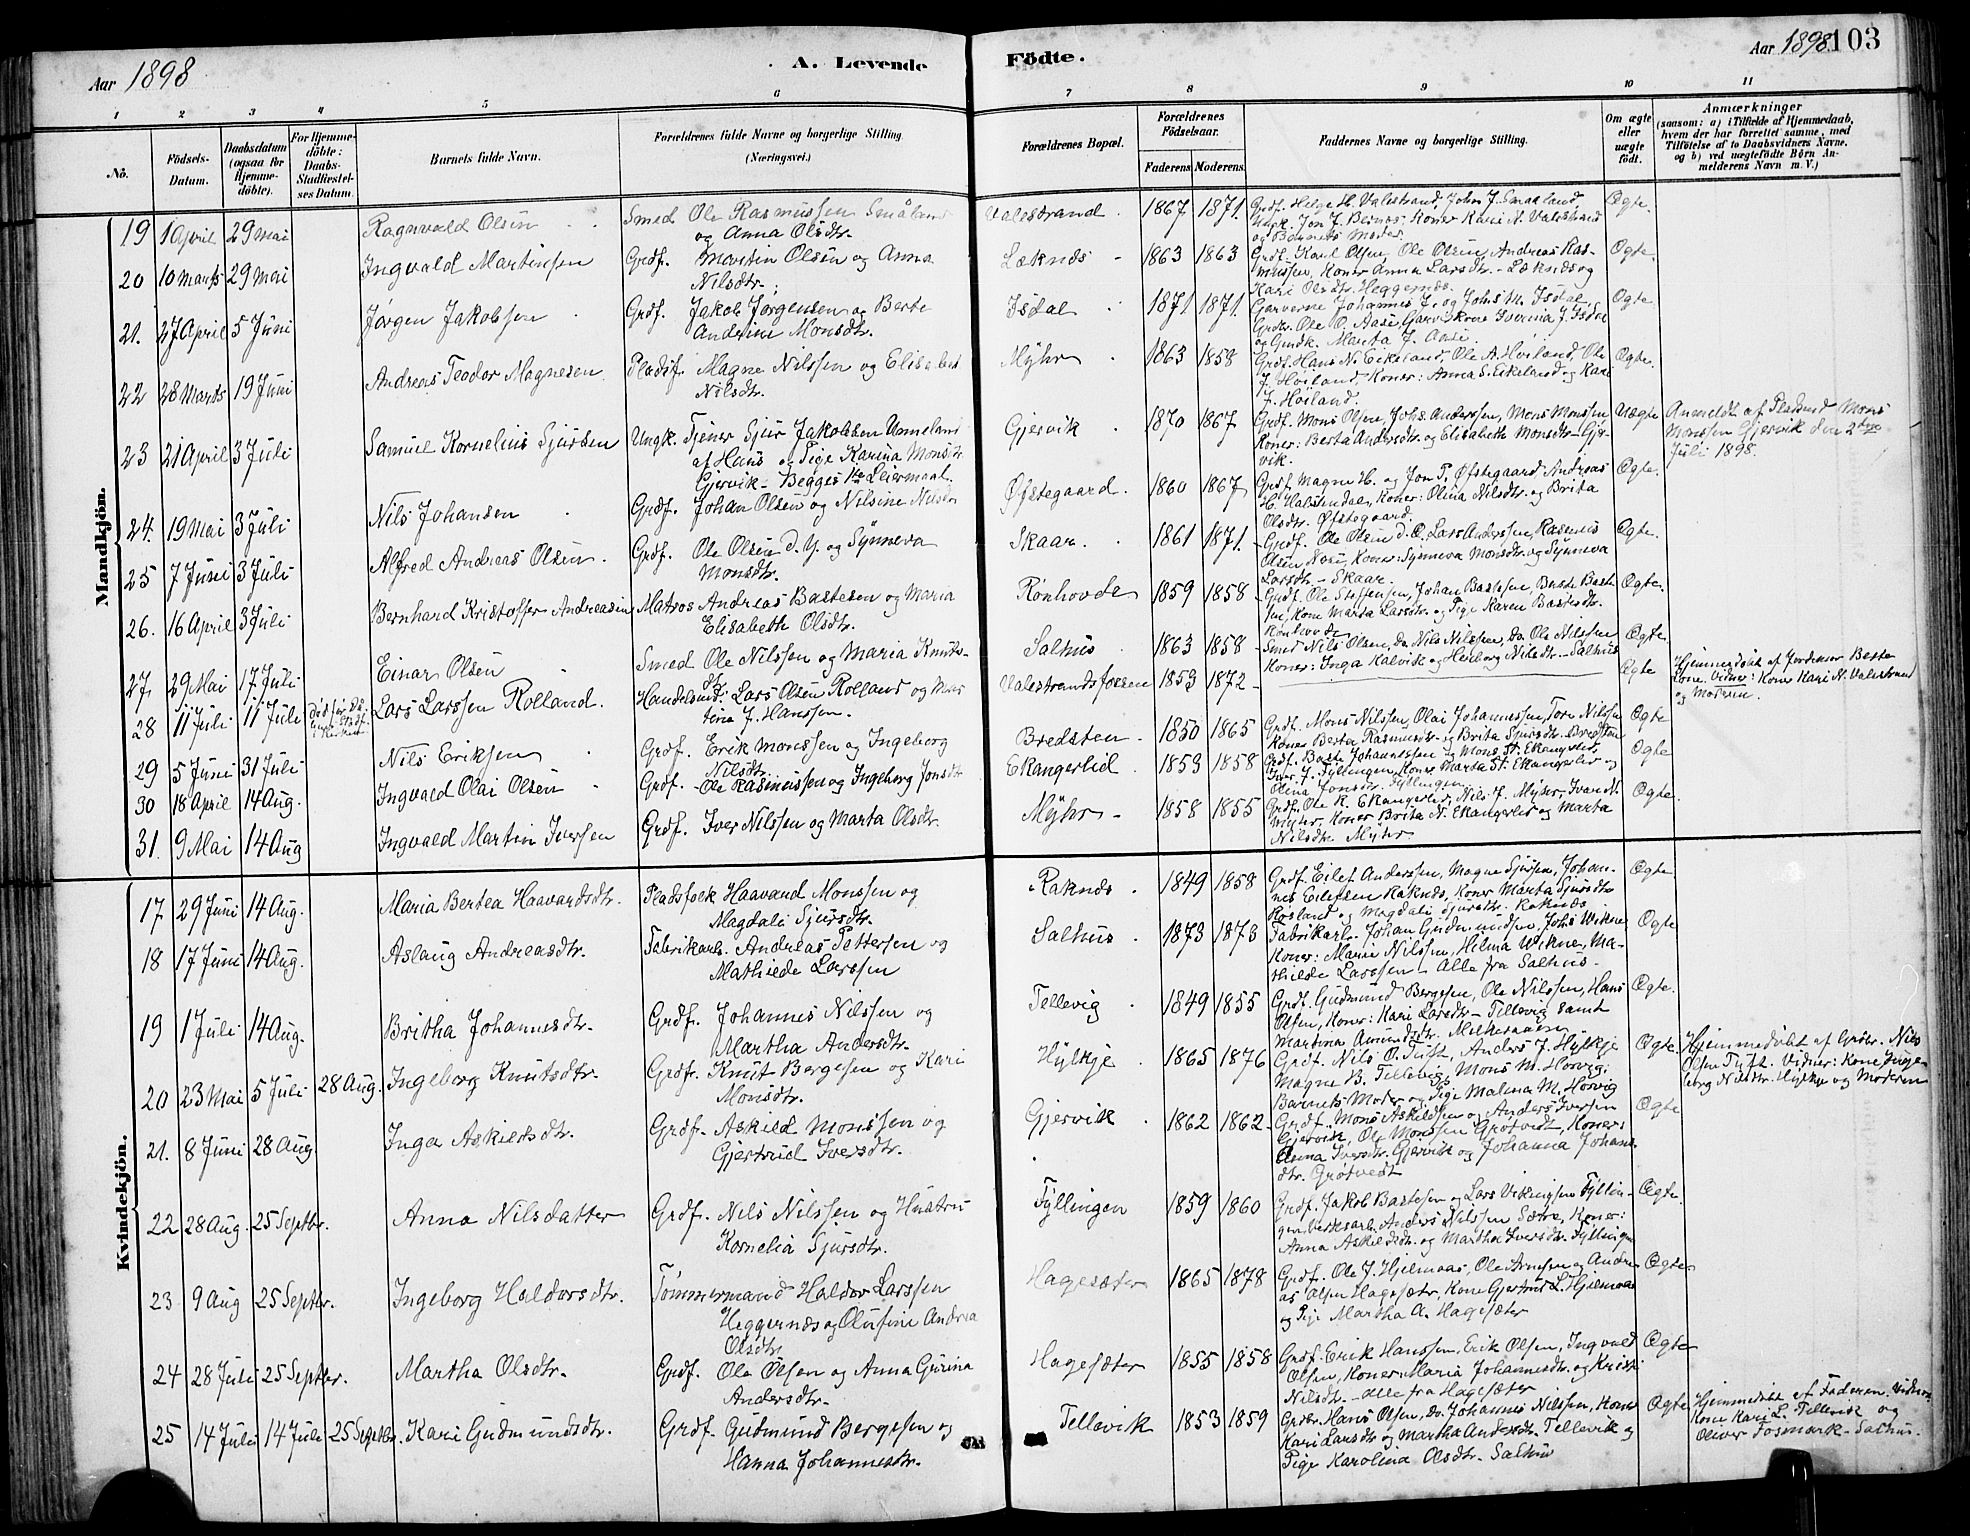 Aar 1898
A. Levende
Födte.
Aar 1898. 103
1 2 3 4 5 6 7 8 9 10 11
Nô.
Födsels-
Datum.
Daabsdatum
(ogsaa för
Hjemme-
döbte).
For Hjemme-
döbte:
Daabs-
Stadfæstel-
ses Datum.
Barnets fulde Navn.
Forældrenes fulde Navne og borgerlige Stilling
(Næringsvei.)
Forældrenes Bopæl.
Forældrenes
Födselsaar.
Faderens Moderens.
Faddernes Navne og borgerlige Stilling.
Om ægte
eller
uægte
födt.
Anmærkninger
(saasom: a) i Tilfælde af Hjemmedaab,
hvem der har forrettet samme, med
Tilföielse af to Daabsvidners Navne,
og b) ved uægtefödte Börn An-
melderens Navn m. V.)
Mandkjön.
19 1 April 29 Mai Ragnvald Olsen Smed Ole Rasmussen Småland
og Anna Olsdtr. Valestrand 1867 1871. Grdf. Helge H. Valestrand, John J. Smaaland,
Ungk. Jon J. Bernes. Koner Kari N. Valestrand
og Barnets Moder. Ægte.
20 10 Marts 29 Mai Ingvald Martinsen Grdf. Martin Olsen og Anna
Nilsdtr. Læknes 1863 1863 Grdf. Karl Olsen, Ole Olsen, Andreas Ras-
mussen, Koner Anna Larsdtr. Læknes og
Kari Olsdtr. Heggernes. Ægte.
21. 27 April 5 Juni Jørgen Jakobsen Grdf. Jakob Jørgensen og Berte
Andrine Monsdtr. Isdal 1871 1871. Garverne Johannes J. og Johs M. Isdal,
Grdbr. Ole O. Aase, Garverkone Iverina J. Isdal
og Gmdk. Marta J. Aase. Ægte
22 28 Marts 19 Juni Andreas Teodor Magnesen Pladsf. Magne Nilssen og Elisabet
Nilsdtr. Mÿhr 1863 1858 Grdf. Hans N. Eikeland, Ole A. Høiland, Ole
J. Høiland, Koner: Anna S. Eikeland og Kari
J. Høiland. Ægte.
23 21 April 3 Juli Samuel Kornelius Sjursen Ungk. Tjener Sjur Jakobsen Unneland
af Haus og Pige Karina Monsdtr
Gjervik - Begges 1ste Leiermaal. Gjervik 1870 1867 Grdf. Mons Olsen, Johs. Anderssen, Mons Monssen
Koner: Berta Andersdtr. og Elisabeth Monsdtr - Gjer-
vik. Uægte Anmeldt af Pladsmd Mons
Monssen Gjervik den 2den
Juli 1898.
24. 19 Mai 3 Juli Nils Johansen Grdf. Johan Olsen og Nilsine Nilsdtr Øfstegaard. 1860 1867 Grdf. Magne H. og Jon P. Øfstegaard Andreas
H. Halstendal, Koner: Olina Nilsdtr. og Brita
Olsdtr. Øfstegaard. Ægte.
25 7 Juni 3 Juli Alfred Andreas Olsen Grdf. Ole Olsen d. Y. og Synneva
Monsdtr. Skaar 1861 1871. Grdf. Ole Olsen d. Æ., Lars Anderssen, Rasmus
Olsen Næse, Koner: Synneva Monsdtr. og Synneva
Larsdtr. - Skaar. Ægte.
26. 16 April 3 Juli Bernhard Kristoffer Andreasen Matros Andreas Bastesen og Maria
Elisabeth Olsdtr. Rønhovde 1859 1858 Grdf. Ole Steffensen, Johan Bastesen, Baste Baste-
sen, Kone Marta Larsdtr. og Pige Karen Bastesdtr.
Rønhovde Ægte.
27. 29 Mai 17 Juli Einar Olsen Smed Ole Nilssen og Maria Knuts-
dtr. Salhus 1863 1858 Smed Nils Olsen, do. Nils Nilssen, do. Ole Nilssen
Koner: Inga Kalvik og Heiborg Nilsdtr - Salhus Ægte.
28 11 Juli 11 Juli Lars Larssen Rolland. Handelsmd. Lars Olsen Rolland og Mar
tina J. Hanssen. Valestrandsfossen 1853 1872 Ægte Hjemmedøbt af Jordemor Berte
Lone. Vidner: Kone Kari N. Valestrand
og Moderen.
29 5 Juni 31 Juli Nils Eriksen Grdf. Erik Monssen og Ingeborg
Nilsdtr. Bredsten 1850 1865 Grdf. Mons Nilssen, Olai Johannessen, Tore Nilssen
Koner Berta Rasmusdtr. og Brita Sjursdtr. Bredsten Ægte
30 18 April 14 Aug. Ingvald Olai Olsen Grdf. Ole Rasmussen og Ingeborg Jonsdtr Ekangerlid 1853 1858 Grdf. Baste Johannessen og Mons St. Ekangerlid,
Iver J. Fyllingen, Koner Marta St. Ekangerlid og
Olina Jonsdtr. Fyllingen Ægte
31. 9 Mai 14 Aug Ingvald Martin Iversen Grdf. Iver Nilssen og Marta Olsdtr. Mÿhr 1858 1855 Grdf. Ole R. Ekangerlid, Nils J. Mÿhr, Ivar N.
Mÿhr, Koner Brita N. Ekangerlid og Marta
Nilsdtr. Mÿhr. Ægte.
Kvindekjön.
17. 29 Juni 14 Aug. Maria Bertea Haavardsdtr. Pladsfolk Haavard Monssen og
Magdali Sjursdtr. Raknes 1849 1858 Grdf. Eilef Anderssen, Magne Sjursen, Johan-
nes Eilefsen Raknes, Koner Marta Sjursdtr
Røsland og Magdali Sjursdtr. Raknes Ægte
18 17 Juni 14 Aug. Aslaug Andreasdtr. Fabrikarb. Andreas Pettersen og
Mathilde Larssen Salhus 1873 1873 Fabrikarb. Johan Gudmundsen, Johs Wikne
Koner: Marie Nilssen, Helma Wikner, Ma-
thilde Larssen - Alle fra Salhus. Ægte
19 1 Juli 14 Aug. Britha Johannesdtr. Grdf. Johannes Nilssen og
Martha Andersdtr. Tellevig 1849 1855 Grdf. Gudmund Bergesen, Ole Nilssen, Hans
Olsen, Koner: Kari Larsdtr - Tellevig samt
Martina Amundsdtr. Ægte.
20 23 Mai 5 Juli 28 Aug. Ingeborg Knutsdtr. Grdf. Knut Bergesen og Kari
Monsdtr. Hylkje 1865 1876 Grdf. Nils O. Tuft, Anders J. Hylkje
Magne B. Tellevig, Mons M. Horvig
Barnets Moder og Pige Malena M. Horvig Ægte. Hjemmedøbt af Grdbr. Nils
Olsen Tuft. Vidner: Kone Inge-
borg Nilsdtr. Hylkje og Moderen
21. 8 Juni 28 Aug. Inga Askildsdtr. Grdf. Askild Monssen og
Gjertrud Iversdtr. Gjervik 1862 1862 Grdf. Mons Askildsen og Anders Iversen
Gjervik, Ole Monssen Grøtvedt, Koner:
Anna Iversdtr. Gjervik og Johanna Johans
dtr. Grøtvedt Ægte
22 28 Aug. 25 Septbr. Anna Nilsdatter Grdf. Nils Nilssen og Hustru
Kornelia Sjursdtr. Fyllingen 1859 1860 Grdf. Jakob Bastesen og Lars Vikingsen Fyllin-
gen, Værksarb. Anders Nilssen Sætre, Koner:
Anna Askildsdtr. og Martha Iversdtr. Fyllingen Ægte.
23 9 Aug 25 Septbr. Ingeborg Haldorsdtr. Tømmermand Haldor Larssen
Heggernes og Olufine Andrea
Olsdtr. Hagesæter 1865 1878 Grdf. Ole J. Hjelmaas, Ole Arnesen og Andre
as Olsen Hagesæter, Kone Gjertrud L. Hjelmaas
og Pige Martha A. Hagesæter Ægte
24 28 Juli 25 Septbr. Martha Olsdtr. Grdf. Ole Olsen og Anna Gurina
Andersdtr. Hagesæter 1855 1858 Grdf. Erik Hanssen, Erik Olsen, Ingvald
Olsen, Koner: Maria Johannesdtr. og Kristi
Nilsdtr. - alle fra Hagesæter Ægte
25 14 Juli 14 Juli 25 Septbr. Kari Gudmundsdtr. Grdf. Gudmund Bergesen og
Hanna Johannesdtr. Tellevik 1853 1859 Grdbr. Hans Olsen, do. Johannes Nilssen, Koner
Kari Larsdtr og Martha Andersdtr. Tellevik og
Pige Karolina Olsdtr. Salhus Ægte Hjemmedøbt af Faderen. Vidner:
Kone Kari L. Tellevik og
Oliver Fosmark - Salhus.